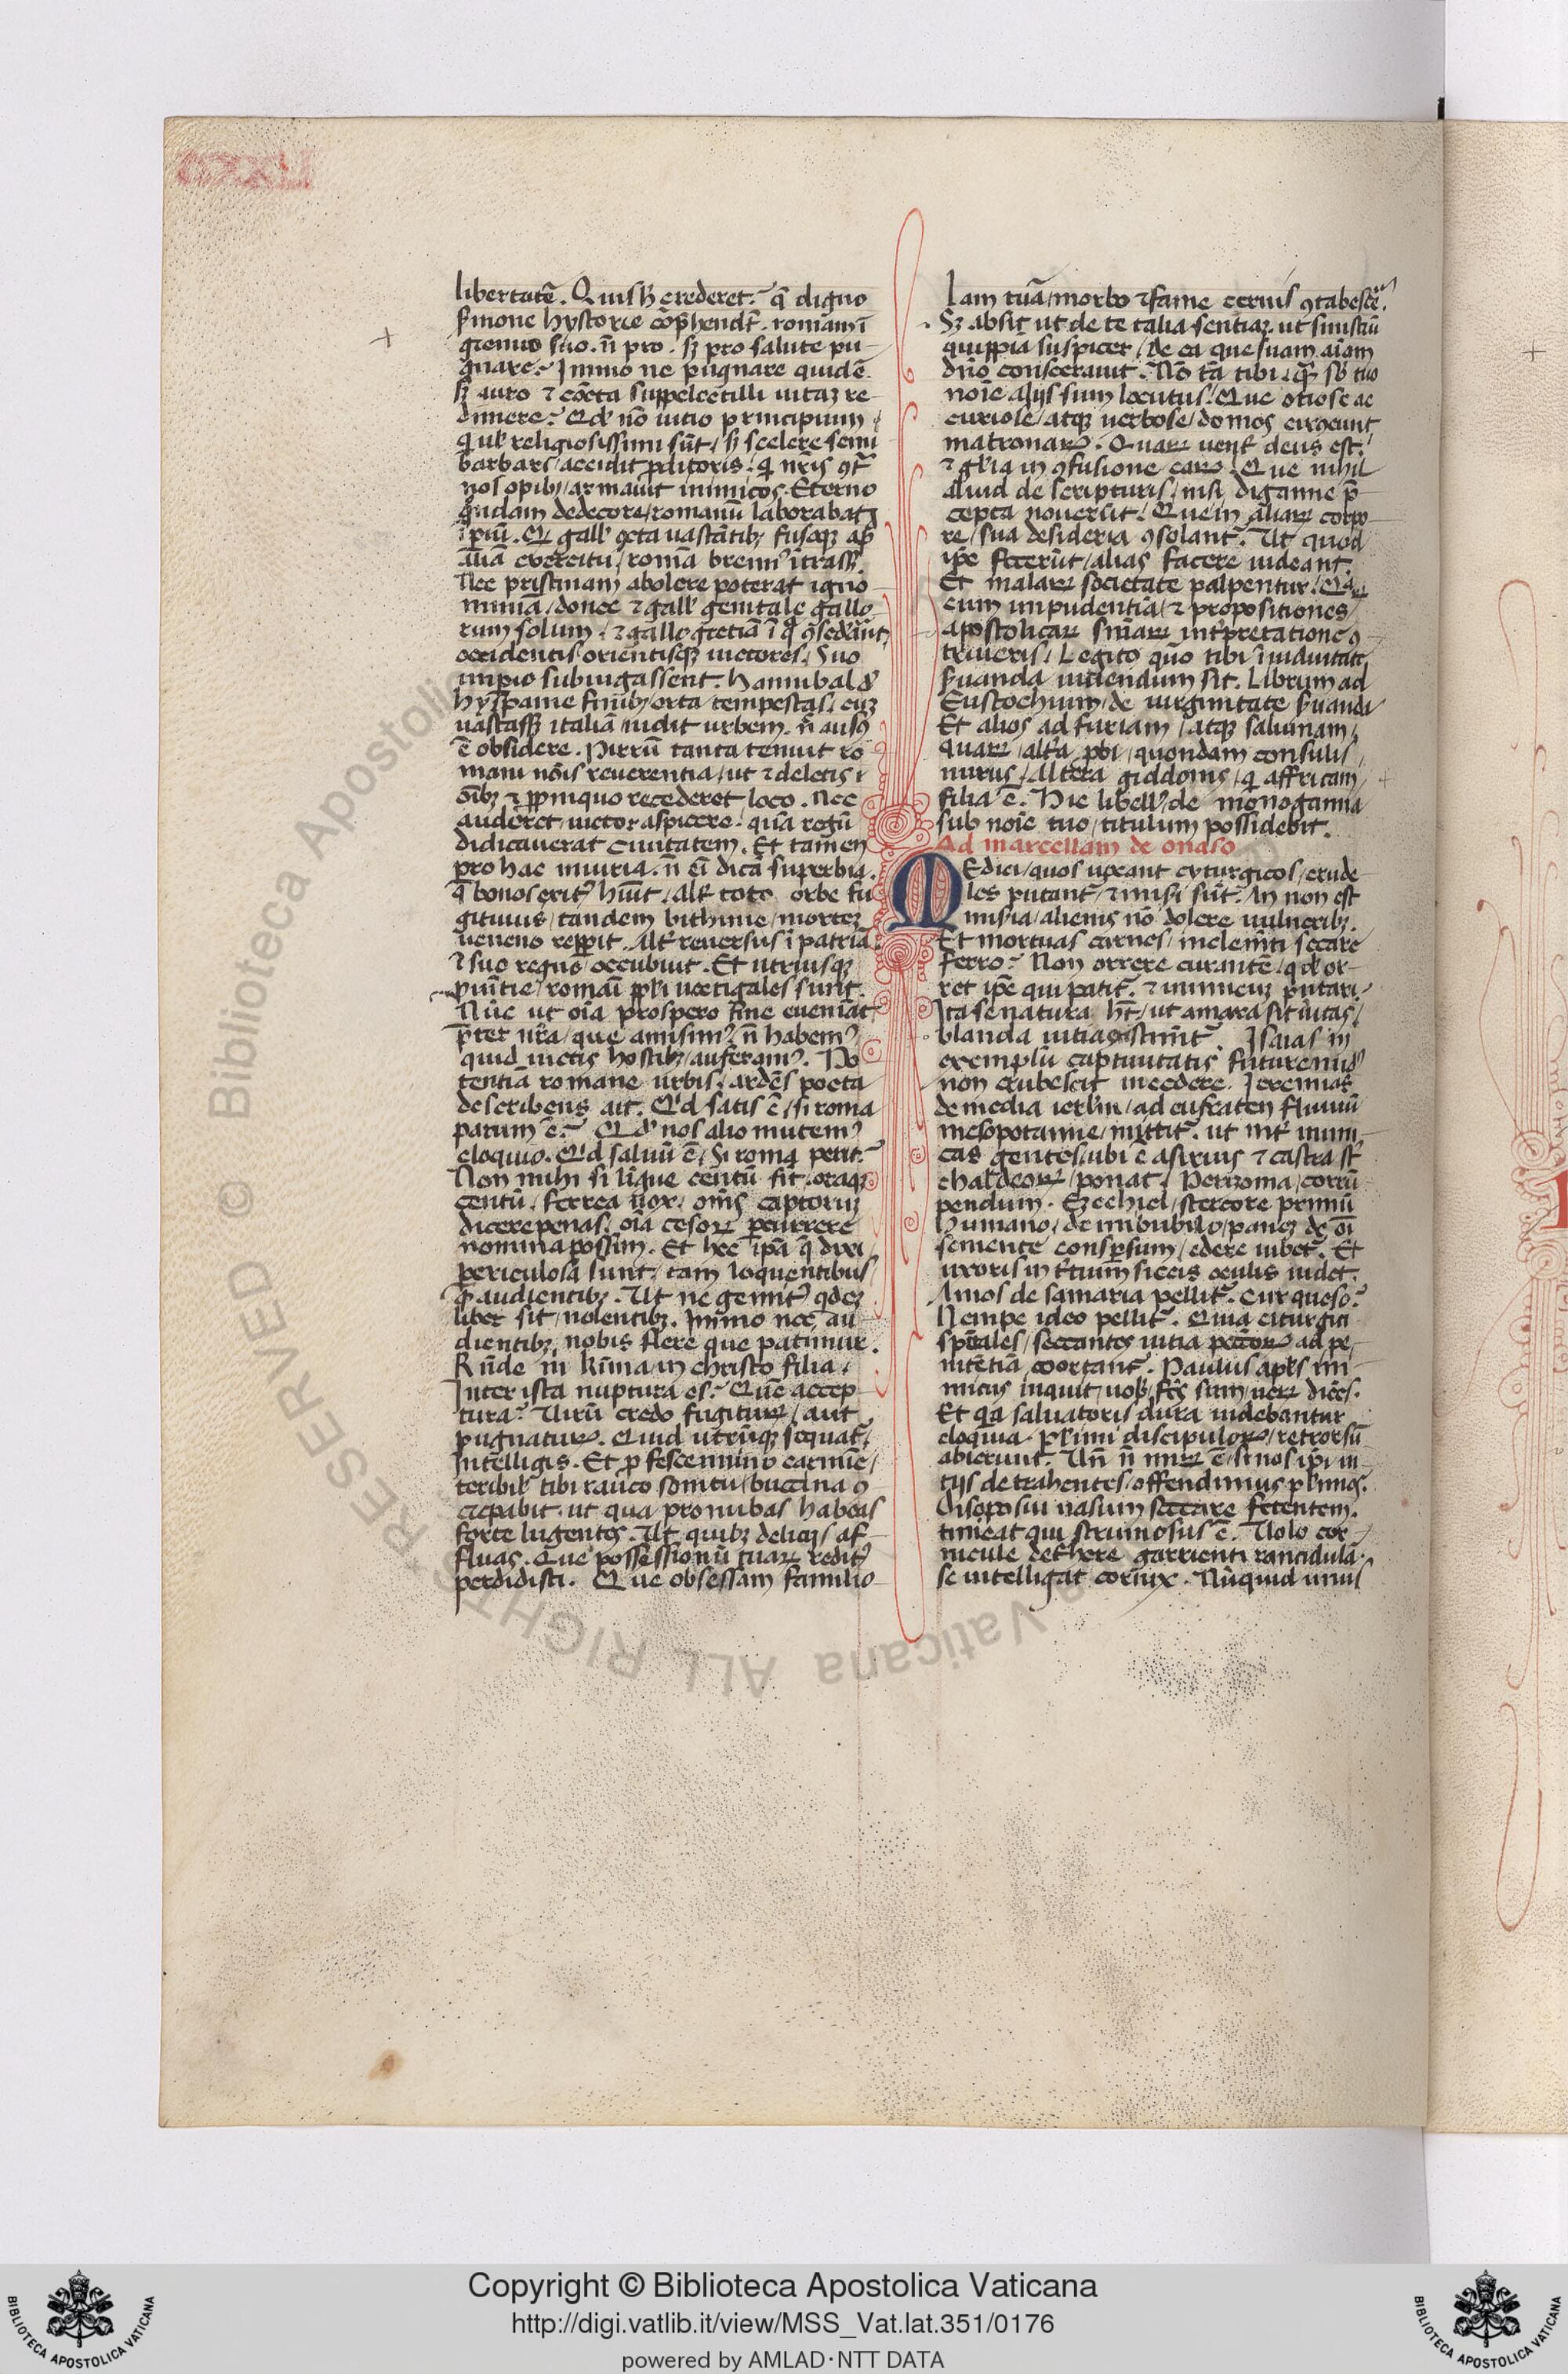 libertatē. Quis h̄ crederet? q̄ digno
ſmone hyſtorie cōp̄hendr̄. romam ī
gremio ſuo. n̄ pro. ſʒ pro ſalute pu-
gnare? Immo ne pugnare quidē.
ſʒ auro ⁊ cūcta ſuppelcētilli uitaʒ re
dimere? Qd' nō uitio principium
q ul' religioſiſſimi ſūt, ſʒ ſcelere ſemi
barbari, accidit pditoris. q nr̄is ꝯt̄
nos opibʒ, armauit inimicos. Eterno
quidam dedecore, romanū laborabat
īpiū. Qʒ gall' ꝯcta uaſtātibʒ, fuſoqʒ ap'
aliā exercitu, romā brenn' ītraſſʒ.
Nec priſtinam abolere poterat igno
miniā, donec ⁊ gall' genitale gallo
rum ſolum, ⁊ gallogretiā ī q ꝯſed'āt,
occidentis orientiſqʒ uictores, ſuo
impio ſubiugaſſent. hannibal d'
hyſpanie finibʒ, orta tempeſtas, cuʒ
uaſtaſſʒ italiā, uidit urbem, n̄ auſꝯ
ē obſidere. Pirrū tanta tenuit ro
mani nōis reuerentia, ut ⁊ deletis
oībʒ ⁊ ꝓpinquo recederet loco. Nec
auderet, uictor aſpicere, quā regū
didicauerat ciuitatem. Et tamen
pro hac iniuria, n̄ eī dicā ſuperbia.
q̄ bonos exit' hūit, alt' toto orbe fu
gitiuus, tandem bithinie, mortez
ueneno repperit. Alt' reuerſus ī patriā
ī ſuo regno, occubuit. Et utriuſqʒ
puītie, romāi ppl'i uectigales ſunt.
Nūc ut oīa proſpero fine eueniāt
p̄ter nr̄a, que amiſim', n̄ habem'
quid uictis hoſtibʒ, auferam'. Po
tentiā romane urbis, ardēs poeta
deſcribens ait. Q'd ſatis ē, ſi roma
parum ē? Qd' nos alio mutem'
eloquio. Q'd ſaluū ē, ſi roma perit?
Non mihi ſi līgue centū ſit, oraqʒ
centū, ferrea uox, omīs captoruʒ
dicere penas, oīa ceſorꝝ pcurrere
nomina poſſim. Et hec īpā q̄ dixi
periculoſa ſunt, tam loquentibus
q̄ audientibʒ. Ut ne gemit' qdeʒ
liber ſit, nolentibʒ. Immo nec au
dientibʒ, nobis flere que patimur.
Rn̄de m̄ kr̄ma in chriſto filia,
Inter iſta nuptura es? Quē accep
tura? Uirū credo fugiturꝝ, aut
pugnaturꝝ. Quid utrūqʒ ſequat',
Intelligis. Et p feſcennino carmīe,
teribil' tibi rauco ſonitu, buccina ꝯ
crepabit, ut qua pronubas habeas
forte lugentes. Ut quibʒ delicijs af-
fluas. Que poſſeſſionū tuarꝝ redit'
perdidiſti. Que obſeſſam familio-
lam tuā, morbo ⁊ fame cernis ꝯtabeſcē.
Sʒ abſit ut de te talia ſentiaʒ. ut ſiniſtrū
quippiā ſuſpicer, de ea que ſuam aīam
dn̄o conſecrauit. Nō tā tibi, q̄ ſb' tuo
noīe alijs ſum locutus. Que otioſe ac
curioſe, atqʒ uerboſe, domos circeunt
matronarꝝ. Quarꝝ uent' deus eſt.
⁊ gl'ia in ꝯfuſione earꝝ. Que nihil
aliud de ſcripturis, niſi diganne p̄
cepta nouerūt. Que in aliarꝝ corpo-
re, ſua deſideria ꝯſolant'. Ut quod
ipē fecerūt, alias facere uideant.
Et malarꝝ ſocietate palpentur. Qaꝝ
cum impudentiā, ⁊ propoſitiones
apoſtolicarꝝ ſn̄iarꝝ int'pretatione ꝯ
triueris, Legito quō tibi ī uiduitate
ſ'uanda uiuendum ſit. Librum ad
Euſtochium, de uirginitate ſ'uanda
Et alios ad furiam, atqʒ ſaluinam,
quarꝝ, alt'a pbi, quondam conſulis
nurus, altera giddonis, q affricam
filia ē. Hic libell' de monogamia
ſub noīe tuo, titulum poſſidebit.
Ad marcellam de onaſo
Medici, quos uocant cyrurgicos, crude
les putant', ⁊ miſi ſūt. An non eſt
miſ'ia, alienis nō dolere uulneribʒ.
Et mortuas carnes, inclemīti ſecare
ferro? Non orrere curantē, qd' or-
ret ipē qui patit'. ⁊ inimicuʒ putari.
Ita ſe natura h̄t, ut amara ſit ūitas,
blanda uitia eſtim̄t'. Iſaias in
exemplū captiuitatis future nud'
non erubeſcit incedere. Jeremias
de media ierl'm, ad eufraten fluuiū
meſopotamie, mittit'. ut int' inimi-
cas gentes, ubi ē aſirius ⁊ caſtra ſt̄
chaldeorꝝ, ponat. Perizoma, corrū-
pendum. Ezechiel, ſtercore primū
humano, de in bubulo, paneʒ de oī
ſemente conſp̄ſum, edere iubet'. Et
uxoris int'itum ſiccis oculis uidet.
Amos de ſamaria pellit'. cur queſo?
Nempe ideo pellit'. Quia cirurgici
ſpūales, ſeccantes uitia peccatorꝝ ad pe-
nitētiā coortant'. Paulus apl's ini-
micus inquit, uob' fc̄s ſum, uerꝝ dicēs.
Et q̄a ſaluatoris dura uidebantur
eloquia. pl'imi diſcipulorꝝ, retrorſū
abierunt. Un̄ n̄ mirꝝ ē, ſi nos ipi ui-
tijs detrahentes, offendimus pl'imos.
Diſpoſui naſum ſeccare fetentem.
timeat qui ſtrumoſus ē. Uolo cor-
nicule det'here garrienti rancidulā.
ſe intelligat cornix. Nūquid unus
Copyright © Biblioteca Apostolica Vaticana
http://digi.vatlib.it/view/MSS_Vat.lat.351/0176
powered by AMLAD·NTT DATA
BIBLIOTECA APOSTOLICA VATICANA
BIBLIOTECA APOSTOLICA VATICANA